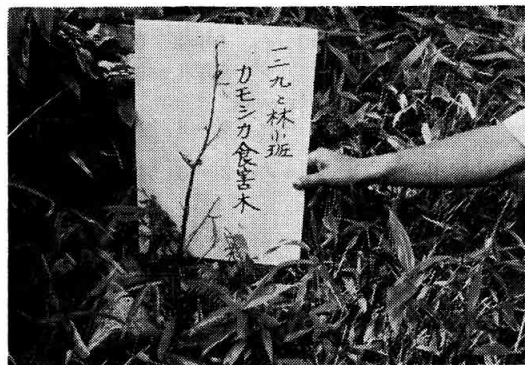 一三九と林小班
カモシカ食害木